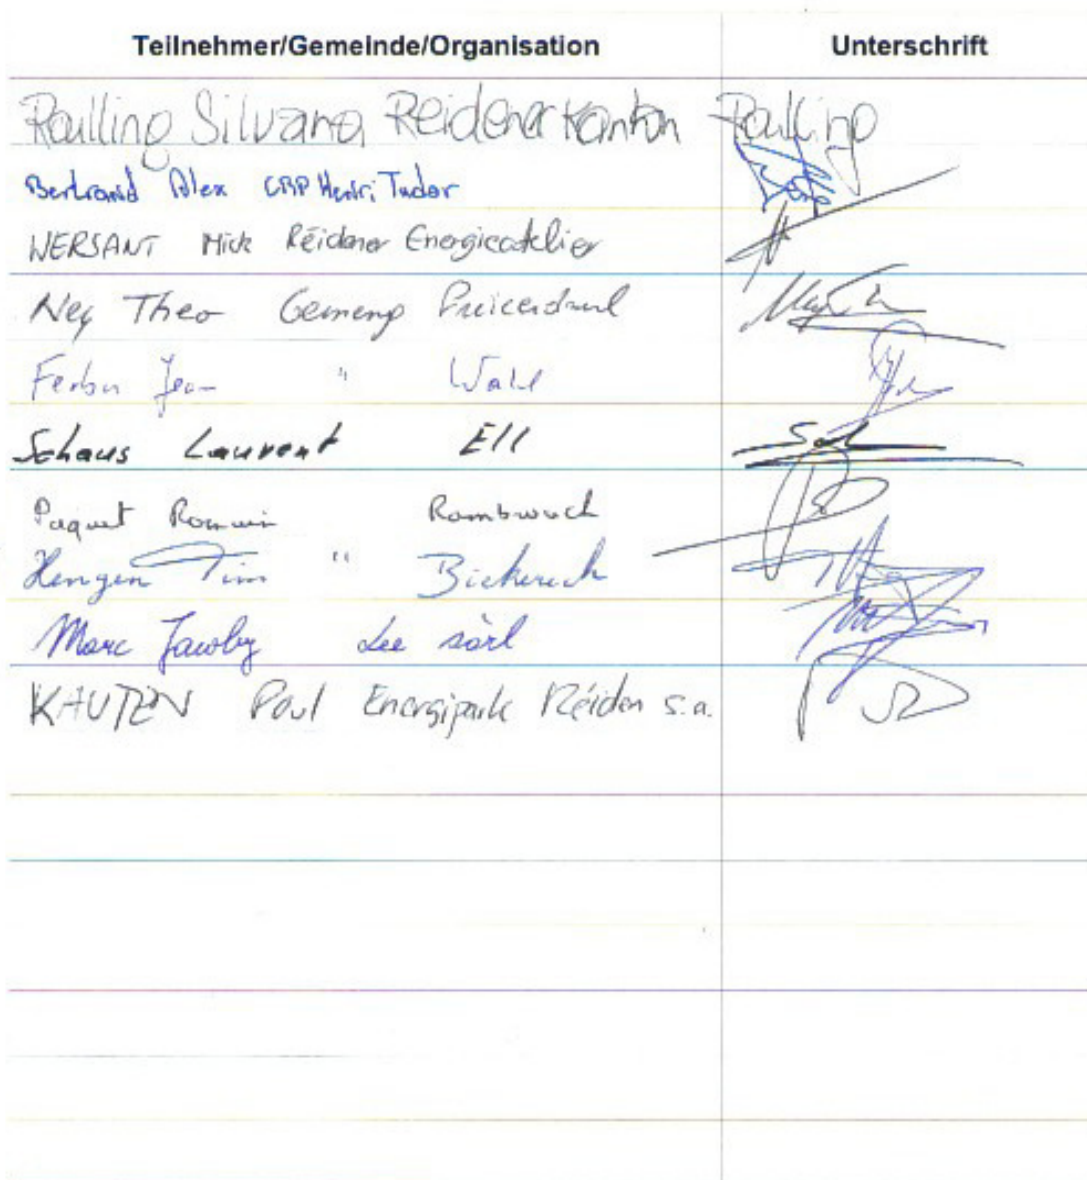 Teilnehmer/Gemeinde/Organisation Unterschrift
Railling Silvana Reidener Kanton Railling
Bertrand Alex CRP Henri Tudor
WERSANT Mick Réidener Energieatelier
Ney Theo Gemeng Preizerdaul
Ferber Jean " Wahl
Schaus Laurent Ell
Paquet Romain Rambrouch
Hengen Tim " Biekerech
Marc Jacoby Lee sàrl
KAUTEN Paul Energipark Réiden s.a.